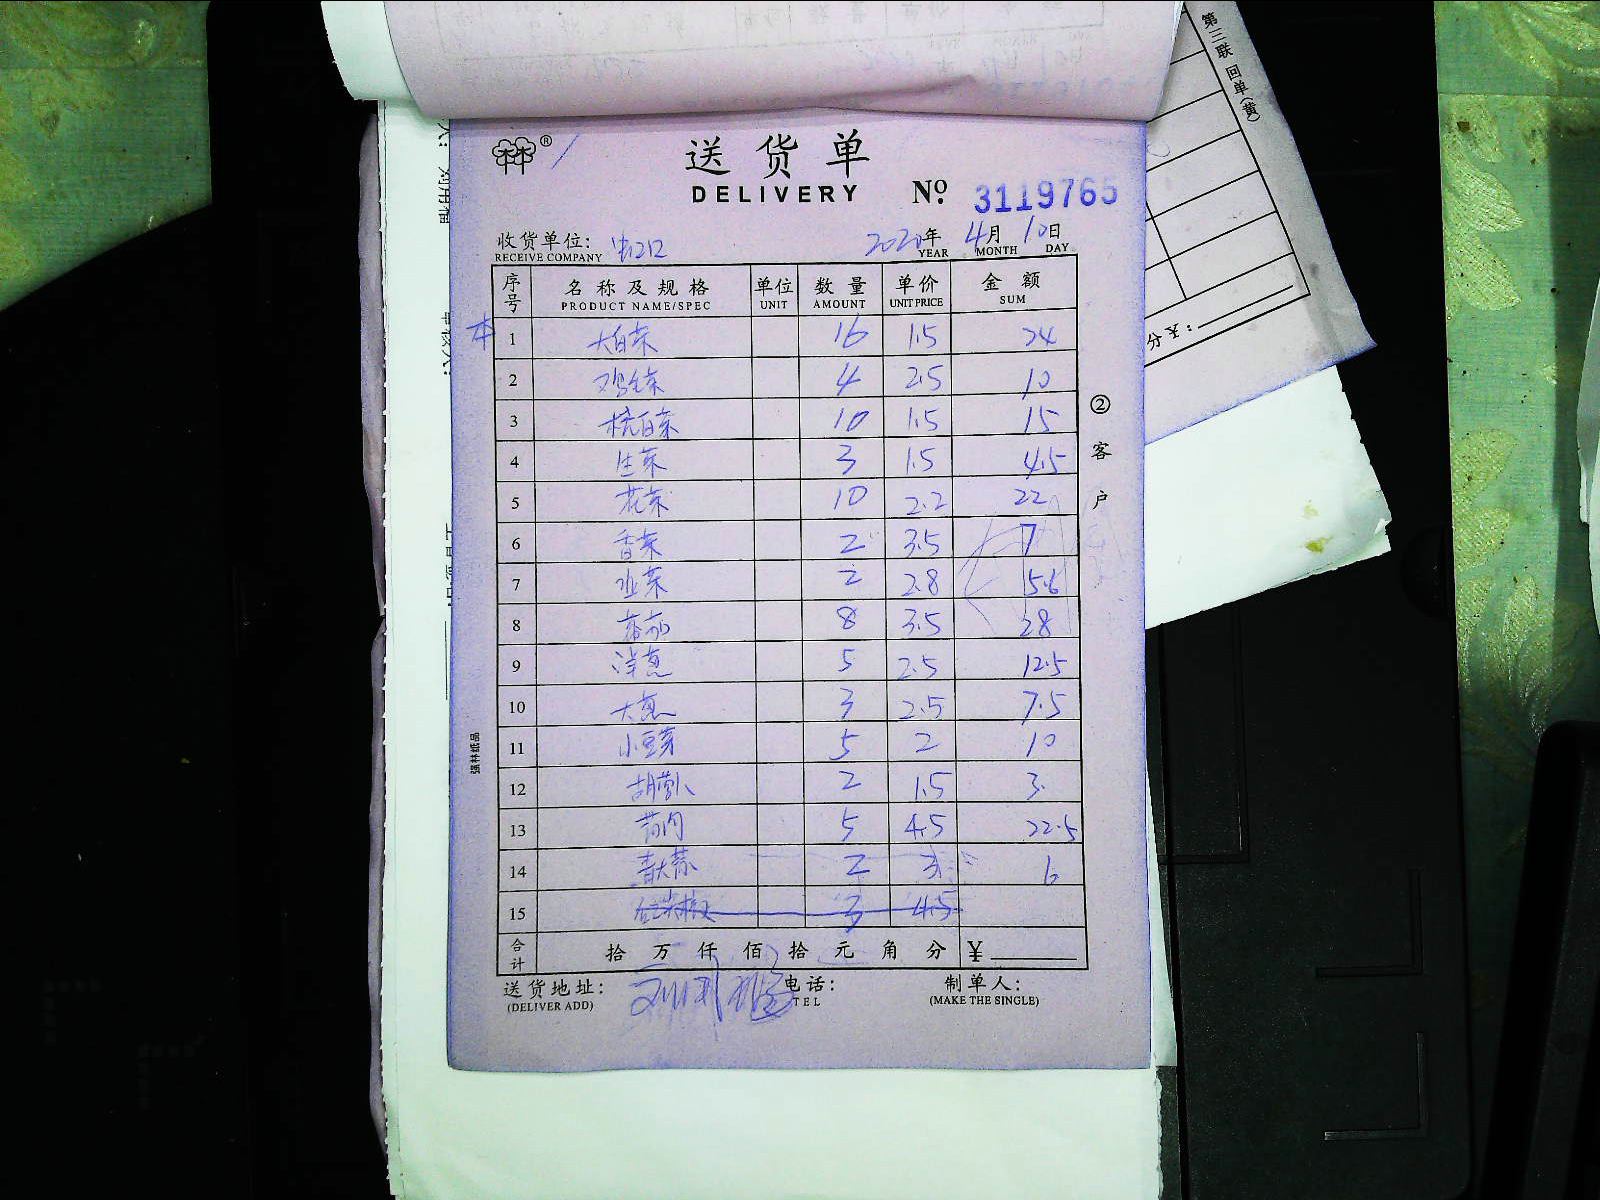 第三联 回单(黄)
送货单
DELIVERY No. 3119765
收货单位:
RECEIVE COMPANY
2020年 4月 10日
YEAR MONTH DAY
序号 名称及规格 单位 数量 单价 金额
PRODUCT NAME/SPEC UNIT AMOUNT UNIT PRICE SUM
本 1 大白菜 16 1.5 24
2 鸡毛菜 4 2.5 10
3 杭白菜 10 1.5 15
4 生菜 3 1.5 4.5
5 花菜 10 2.2 22
6 香菜 2 3.5 7
7 韭菜 2 2.8 5.6
8 番茄 8 3.5 28
9 洋葱 5 2.5 12.5
10 大葱 3 2.5 7.5
11 小豆芽 5 2 10
12 胡萝卜 2 1.5 3
13 5 4.5 22.5
14 青大蒜 2 3 6
15 3 4.5
合计 拾 万 仟 佰 拾 元 角 分 ¥
送货地址: 电话: 制单人:
(DELIVER ADD) TEL (MAKE THE SINGLE)
②客户
强林纸品